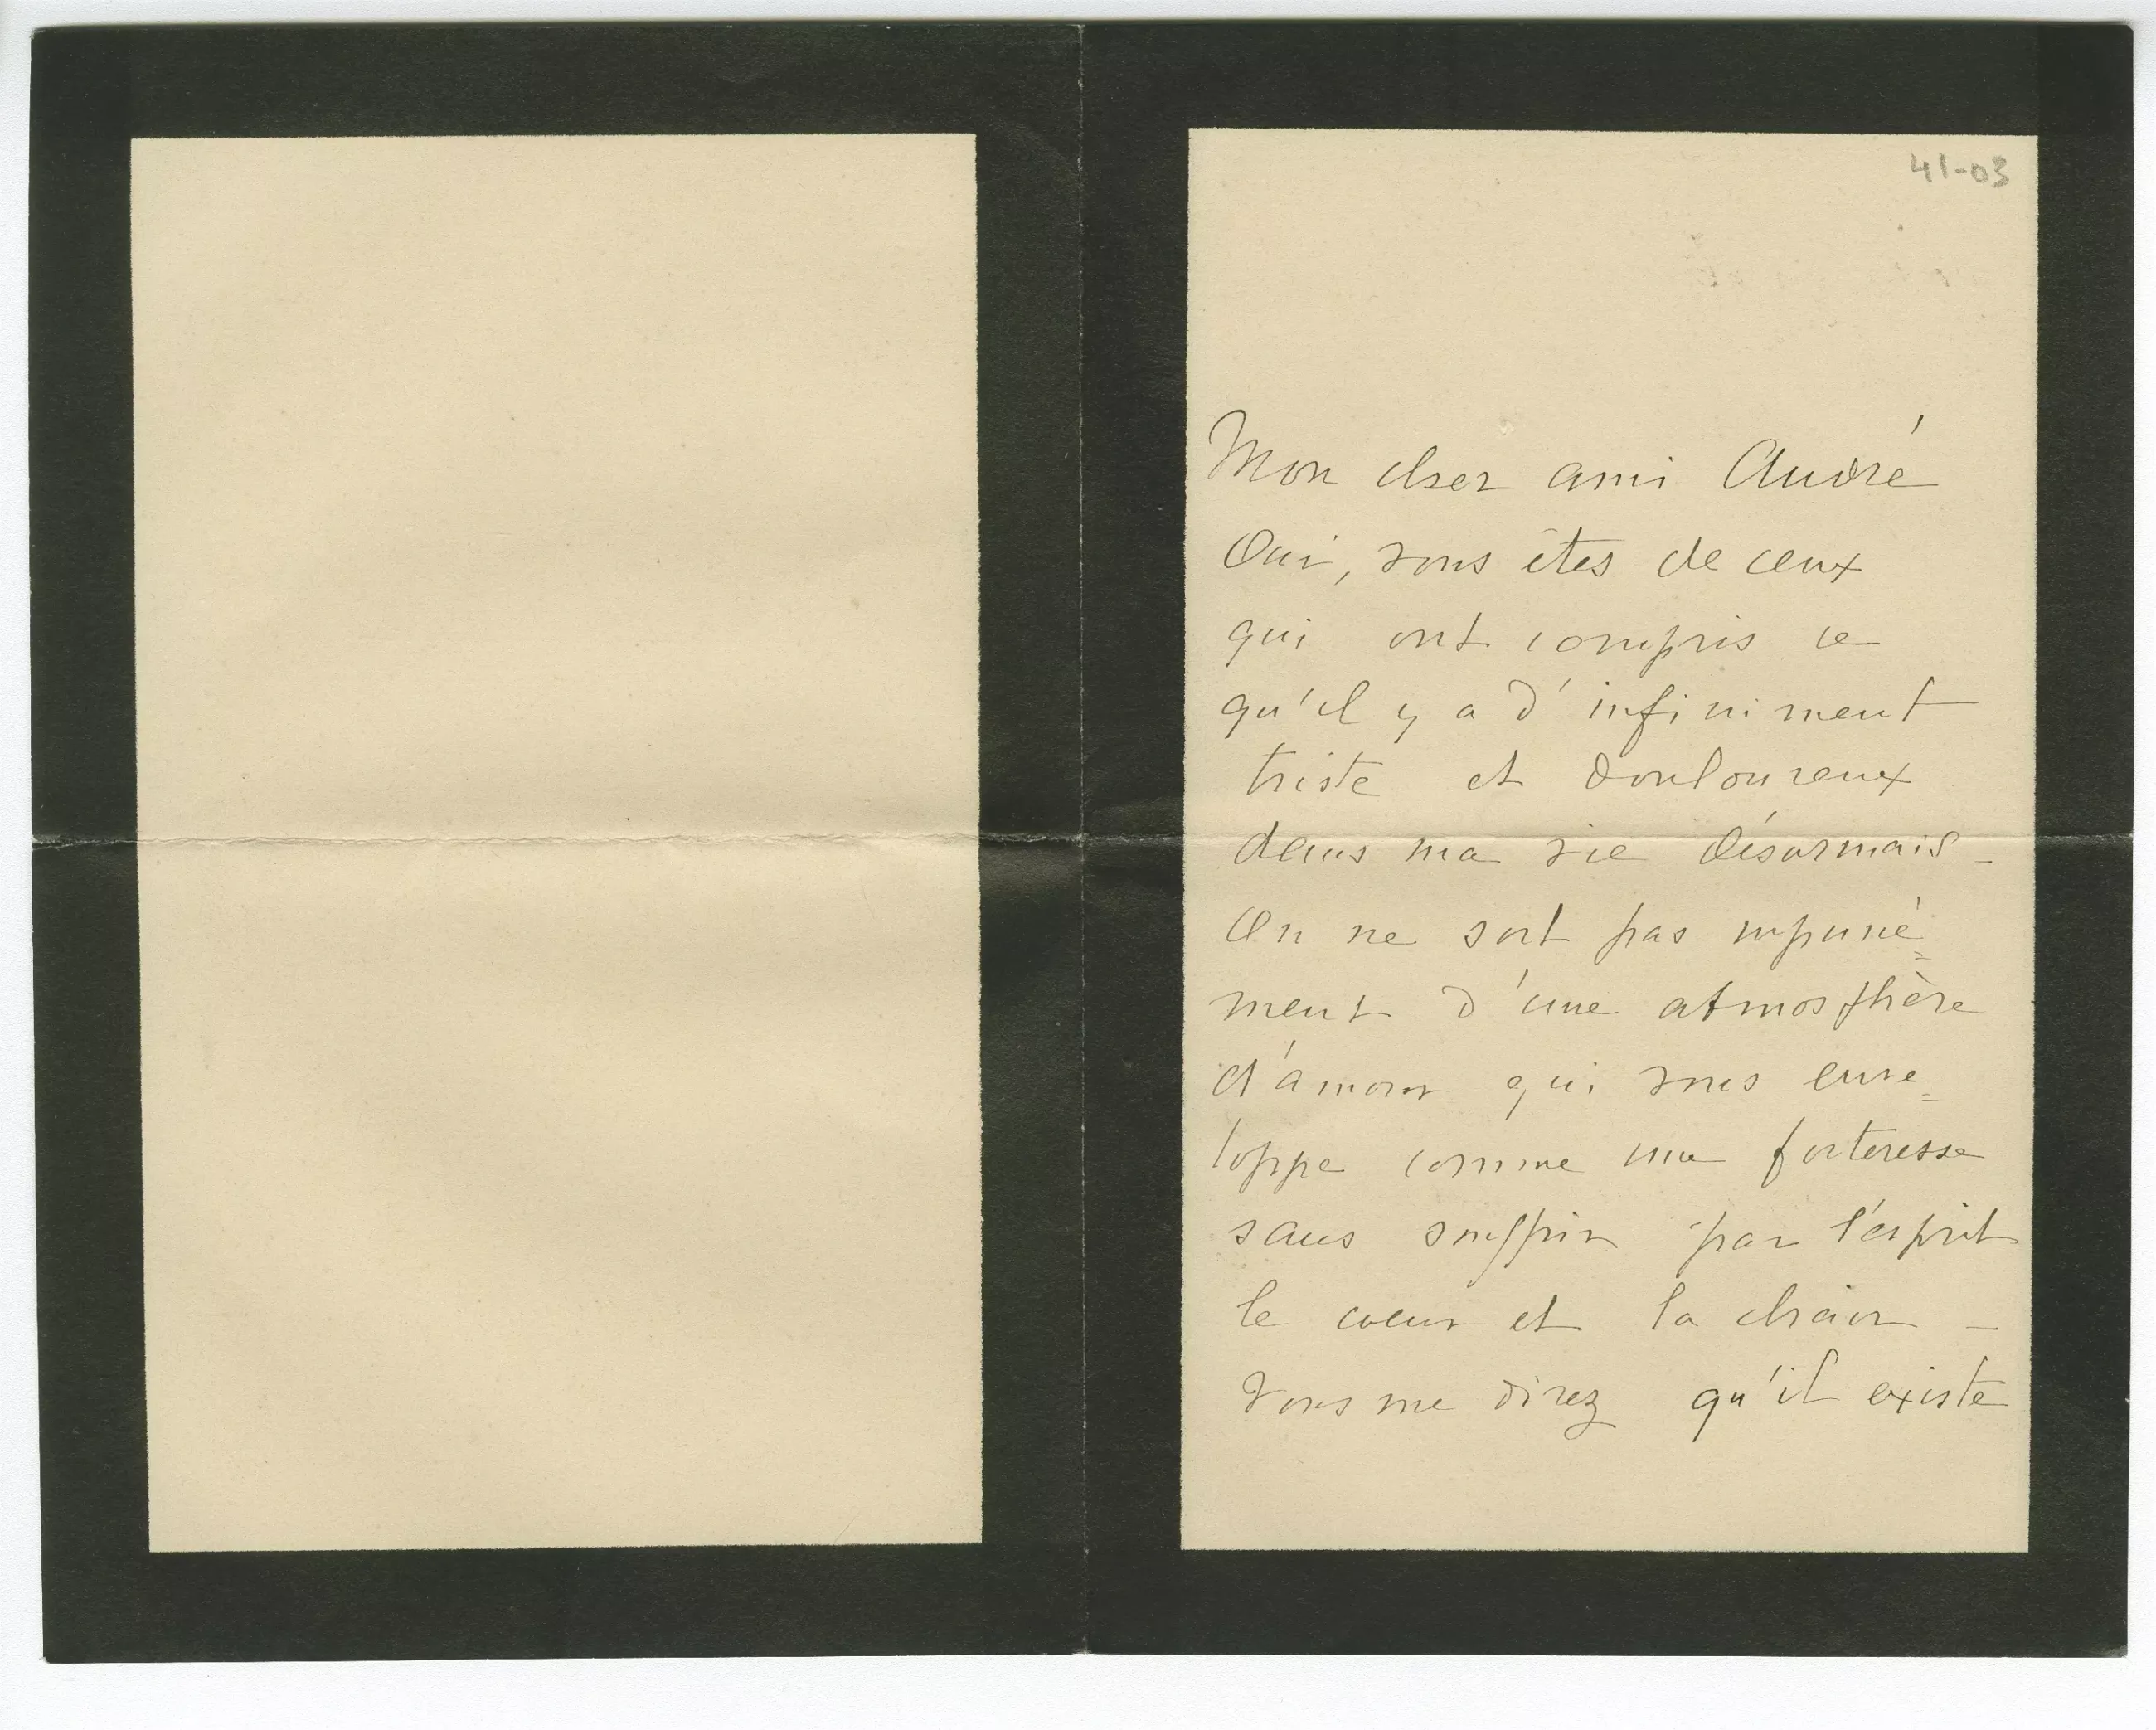 41-03
Mon cher ami André
Oui, vous êtes de ceux
qui ont compris ce
qu'il y a d'infiniment
triste et douloureux
dans ma vie désormais -
On ne sort pas impuné=
ment d'une atmosphère
d'amour qui vous enve=
loppe comme une forteresse
sans souffrir par l'esprit
le coeur et la chair -
Vous me direz qu'il existe